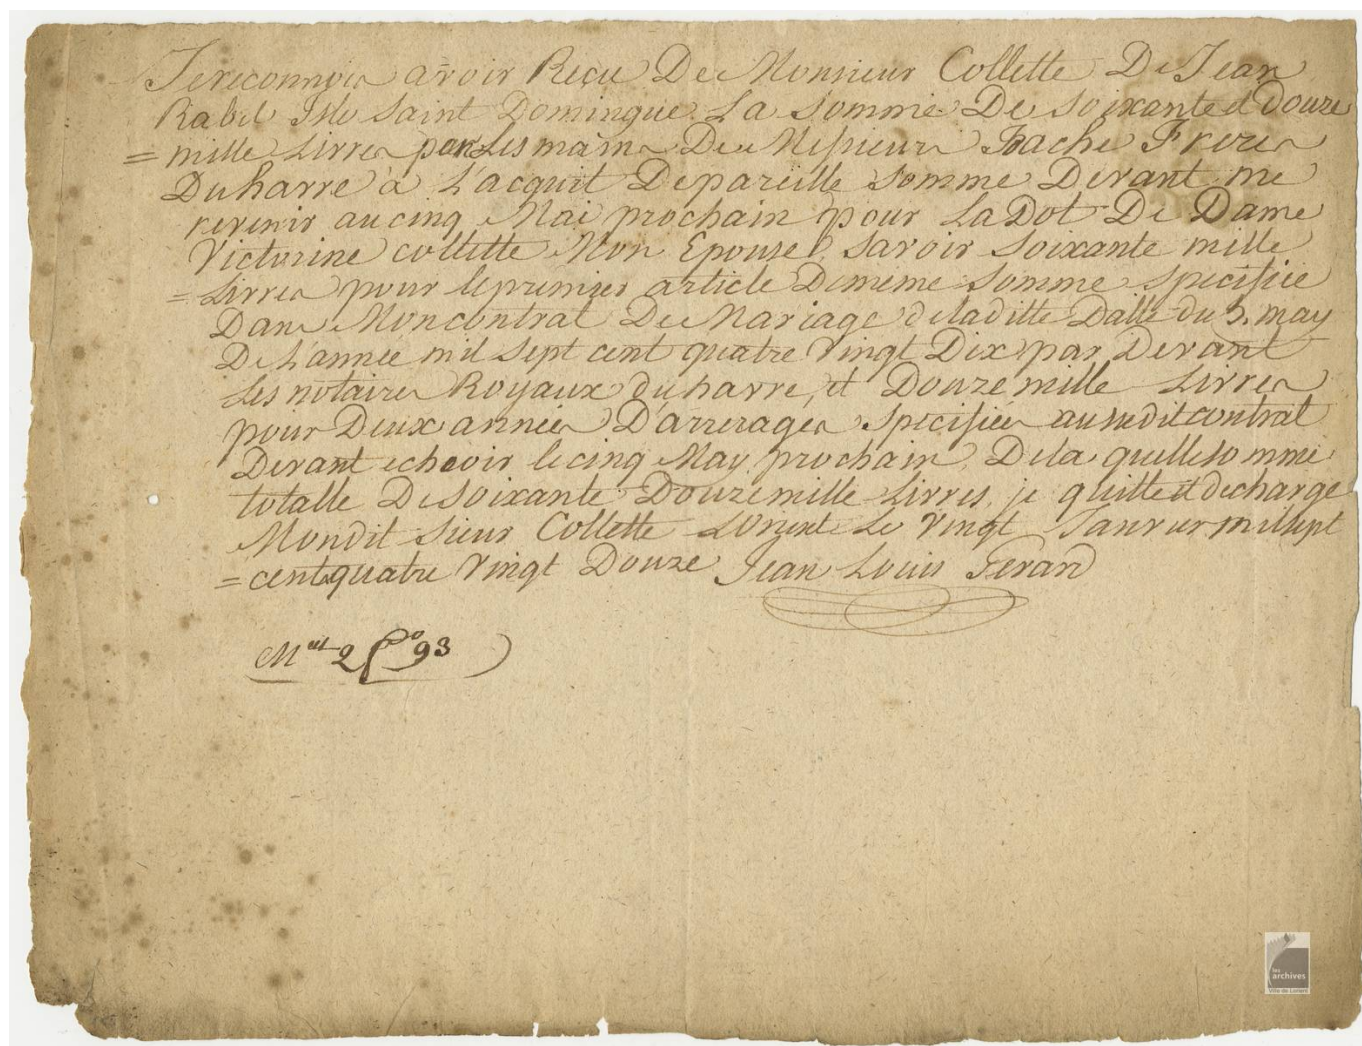 Je reconnois avoir Reçu De Monsieur Collette De Jean
Rabel Isle Saint Domingue La Somme De Soixante et douze
= mille Livres par Les mains De Messieurs Bache Freres
Du havre à L'acquit De pareille Somme Devant me
revenir au cinq Mai prochain pour La Dot De Dame
Victorine collette Mon Epouse Savoir Soixante mille
= Livres pour le premier article De meme Somme Specifiée
Dans Mon contrat De Mariage de laditte Datte du 5. may
De L'année mil Sept cent quatre Vingt Dix par Devant
Les notaires Royaux du havre, et Douze mille Livres
pour Deux années D'arrerages Specifiées au sudit contrat
Devant echeoir le cinq May prochain, De la quelle somme
totalle De Soixante Douze mille Livres, je quitte et decharge
Mondit Sieur Collette L'Orient Le Vingt Janvier mil sept
= cent quatre Vingt Douze Jean Louis Ferand
2 f° 93
les
archives
Ville de Lorient